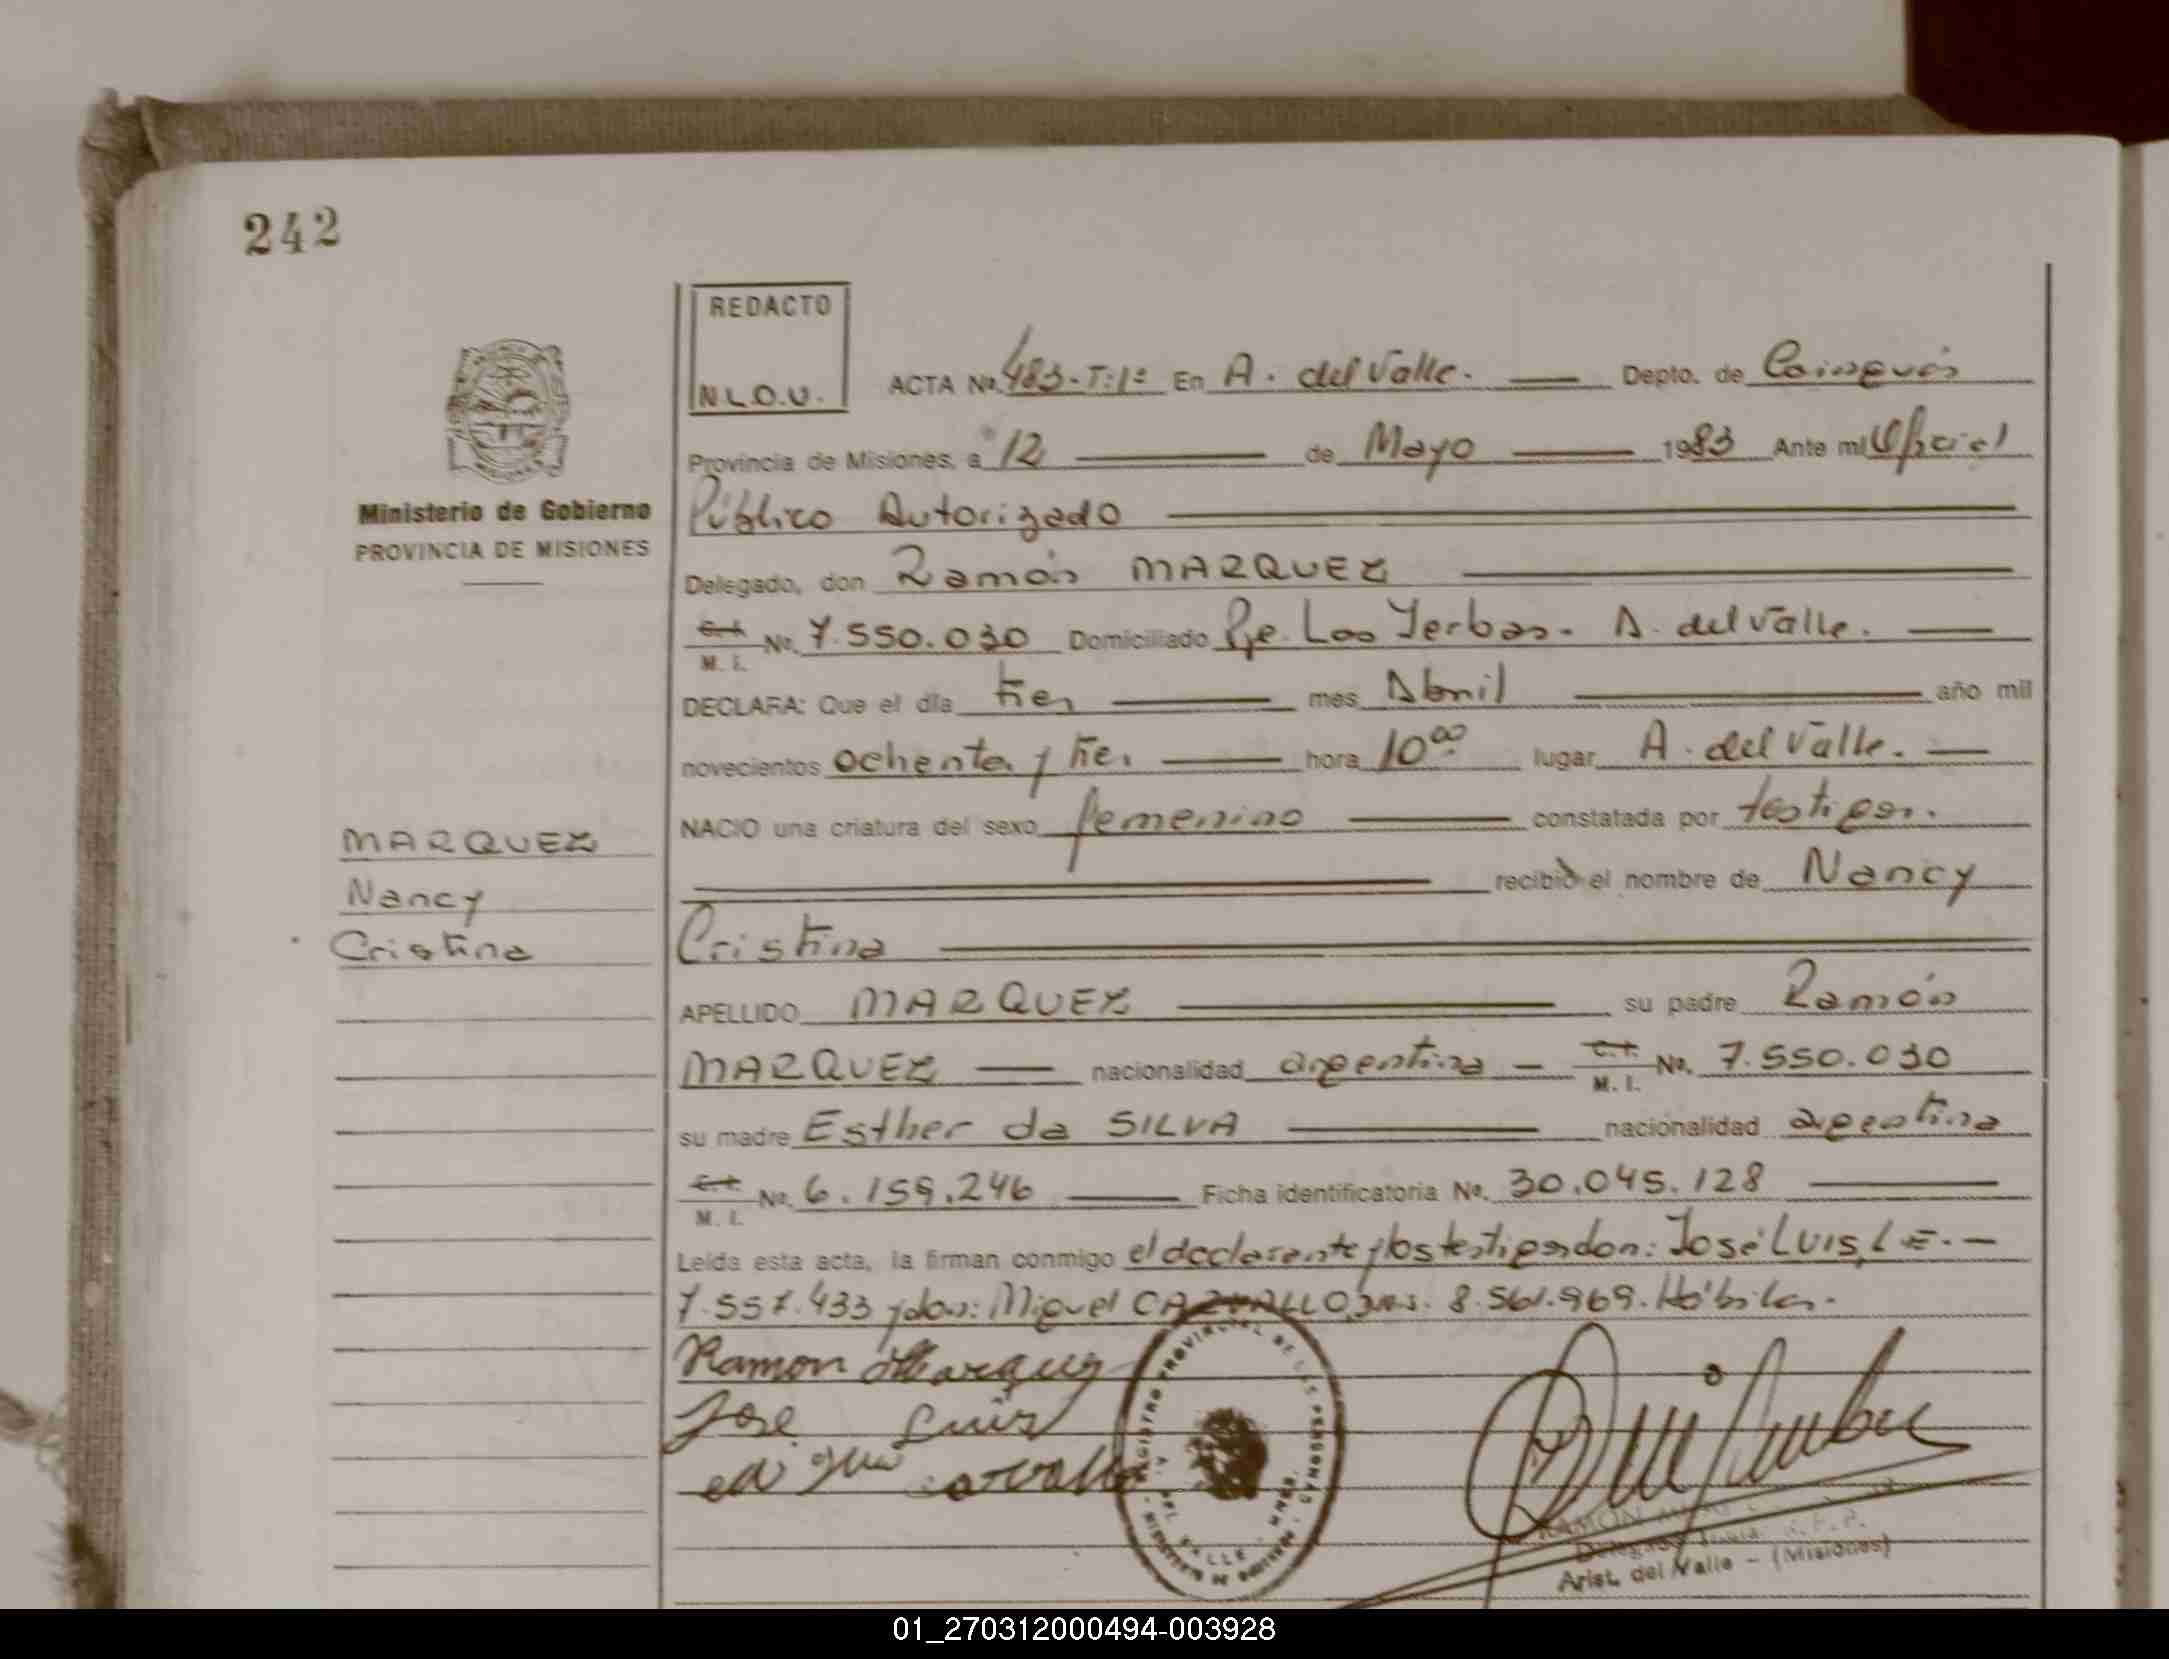 242
REDACTO
N.L.O.V.
ACTA Nº. 483-T:1º En A. del Valle. Depto. de Cainguás
Provincia de Misiones, a 12 de Mayo 1983 Ante mi Oficial
Público Autorizado
Ministerio de Gobierno
PROVINCIA DE MISIONES
Delegado, don Ramón MARQUEZ
C.I. M. I. Nº. 7.550.030 Domiciliado Pje. Las Yerbas. A. del Valle.
DECLARA: Que el día tres mes Abril año mil
novecientos ochenta y tres hora 10.00 lugar A. del Valle.
NACIO una criatura del sexo femenino constatada por testigos.
recibió el nombre de Nancy
Cristina
MARQUEZ
Nancy
Cristina
APELLIDO MARQUEZ su padre Ramón
MARQUEZ nacionalidad argentina C.I. M. I. Nº. 7.550.030
su madre Esther da SILVA nacionalidad argentina
C.I. M. I. Nº. 6.159.246 Ficha identificatoria Nº. 30.045.128
Leída esta acta, la firman conmigo el declarante y los testigos don: José LUIS, L.E.
7.557.433 y don: Miguel CARVALLO, 8.561.969. Hábiles.
Ramon Marquez
Jose Luis
carvallo
REGISTRO PROVINCIAL DE LAS PERSONAS
A. DEL VALLE
MISIONES
RAMON
Arist. del Valle - (Misiones)
01_270312000494-003928